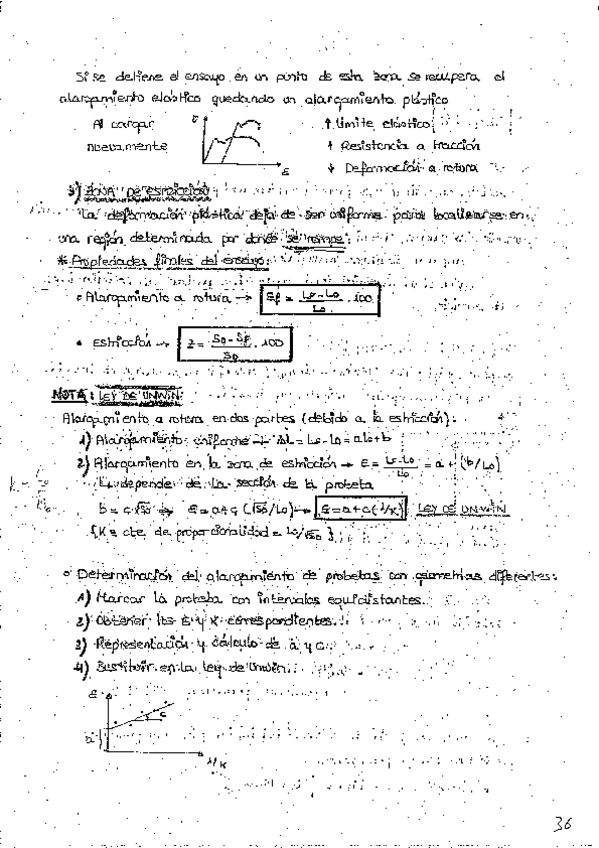 Si se detiene el ensayo en un punto de esta zona se recupera el
alargamiento elástico quedando un alargamiento plástico
Al cargar
nuevamente
σ
ε
↑ límite elástico
↑ Resistencia a tracción
↓ Deformación a rotura
3) ZONA DE ESTRICCIÓN
La deformación plástica deja de ser uniforme para localizarse en
una región determinada por donde se rompe.
* Propiedades finales del ensayo:
• Alargamiento a rotura → εf = (Lf - Lo)/Lo · 100
• Estricción → Z = (So - Sf)/So · 100
NOTA: LEY DE UNWIN:
Alargamiento a rotura en dos partes (debido a la estricción):
1) Alargamiento uniforme → ΔL = Lf - Lo = aLo + b
2) Alargamiento en la zona de estricción → ε = (Lf - Lo)/Lo = a + (b/Lo)
↳ depende de la sección de la probeta
b = c√So → ε = a + c (√So/Lo) → ε = a + c (1/K) LEY DE UNWIN
{K = cte. de proporcionalidad = Lo/√So}
• Determinación del alargamiento de probetas con geometrías diferentes:
1) Marcar la probeta con intervalos equidistantes.
2) Obtener los ε y K correspondientes.
3) Representación y cálculo de a y c
4) Sustituir en la ley de Unwin.
ε
c
a
1/K
36